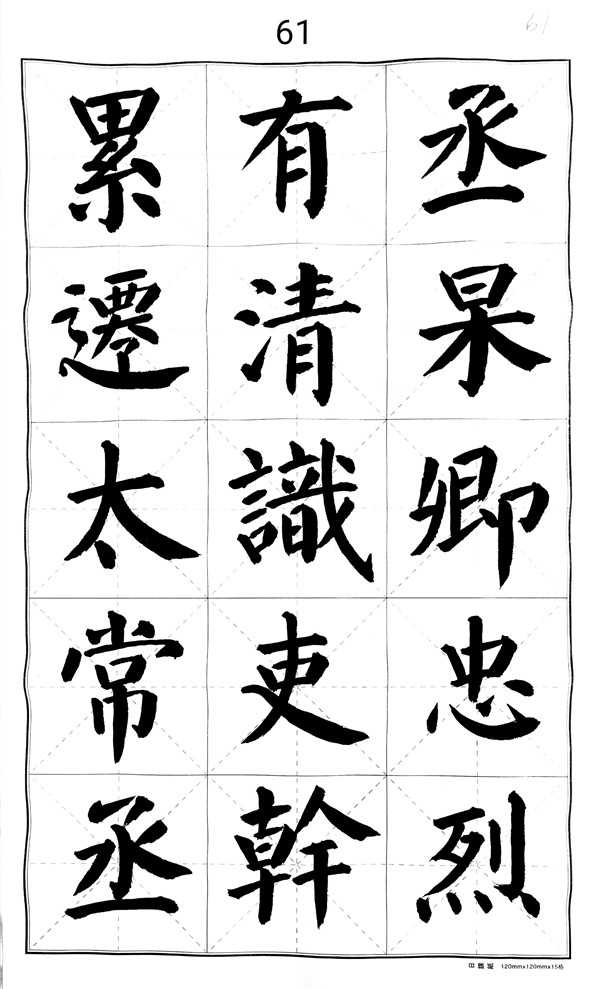 61
61
丞杲卿忠烈
有清識吏幹
累遷太常丞
120mmx120mmx15格